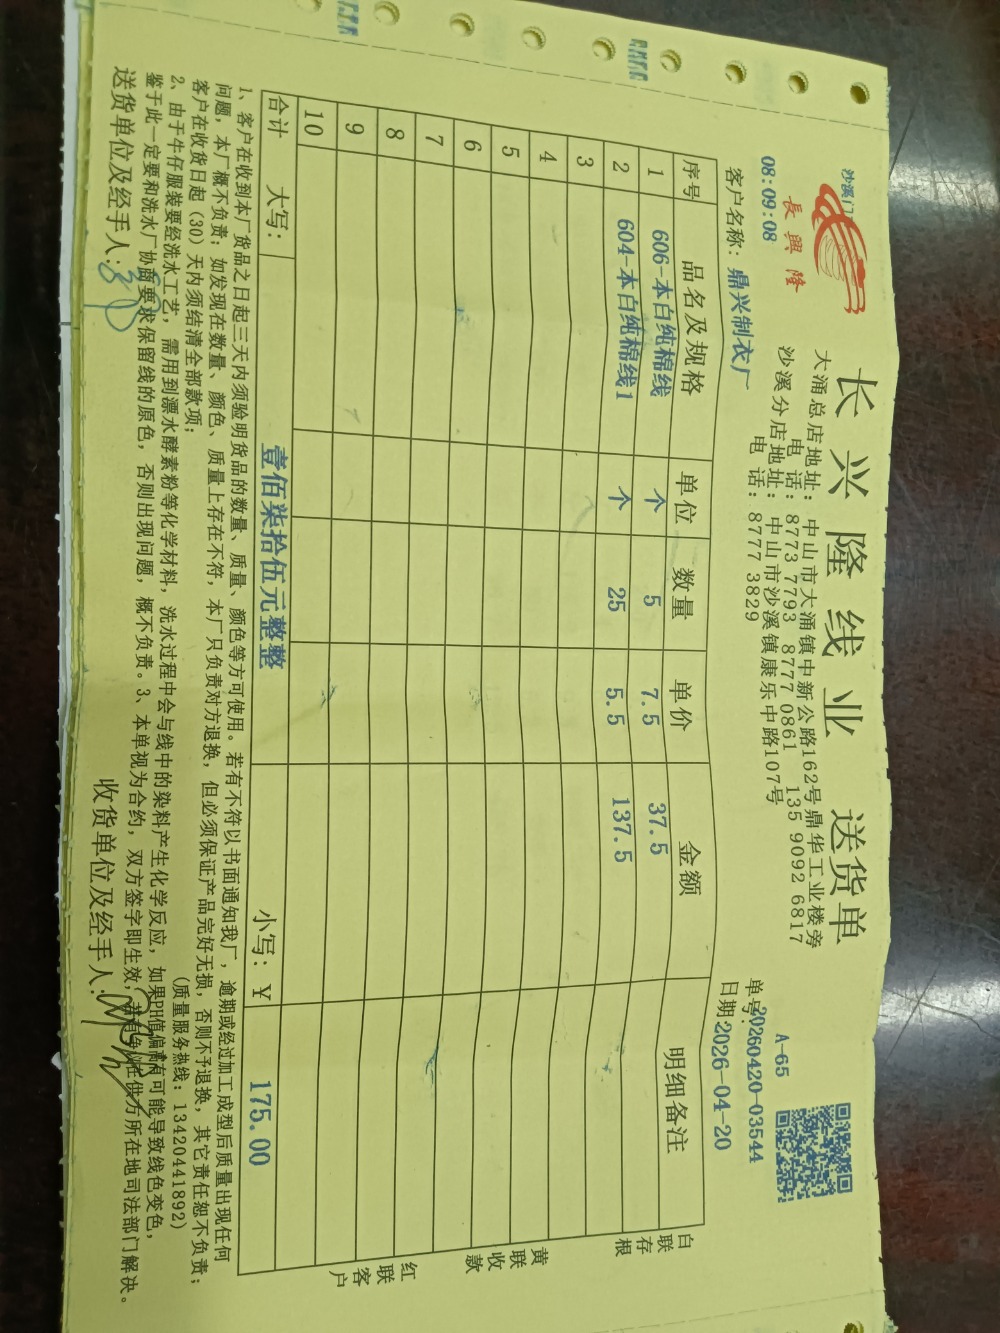 沙溪门
長興隆
08:09:08
长兴隆线业 送货单
大涌总店地址: 中山市大涌镇中新公路162号鼎华工业楼旁
电 话: 8773 7793 8777 0861 135 9092 6817
沙溪分店地址: 中山市沙溪镇康乐中路107号
电 话: 8777 3829
A-65
单号:20260420-03544
客户名称: 鼎兴制衣厂
日期:2026-04-20
序号 品名及规格 单位 数量 单价 金额 明细备注
1 606-本白纯棉线 个 5 7.5 37.5
2 604-本白纯棉线1 个 25 5.5 137.5
3
4
5
6
7
8
9
10
合计 大写: 壹佰柒拾伍元整整 小写: ¥ 175.00
白联存根
黄联收款
红联客户
1、客户在收到本厂货品之日起三天内须验明货品的数量、质量、颜色等方可使用。若有不符以书面通知我厂，逾期或经过加工成型后质量出现任何
问题，本厂概不负责；如发现在数量、颜色、质量上存在不符，本厂只负责对方退换，但必须保证产品完好无损，否则不予退换，其它责任恕不负责；
客户在收货日起（30）天内须结清全部款项； (质量服务热线: 13420441892)
2、由于牛仔服装要经洗水工艺，需用到漂水酵素粉等化学材料，洗水过程中会与线中的染料产生化学反应，如果PH值偏离有可能导致线色变色，
鉴于此一定要和洗水厂协商要求保留线的原色，否则出现问题，概不负责。3、本单视为合约，双方签字即生效，若有争议在供方所在地司法部门解决。
送货单位及经手人: 收货单位及经手人: